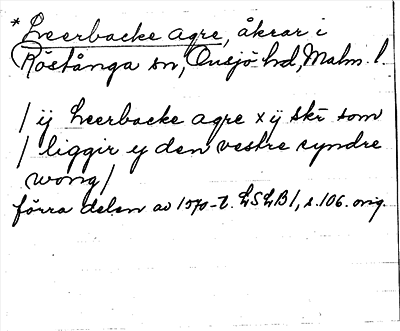 * Leerbacke agre, åkrar i
Röstånga sn, Onsjö hd, Malm. l.
/ ij Leerbacke agre x ij skr som
/ liggir y den vestre syndre
wong /
förra delen av 1570-t. LSLB1, s. 106. orig.